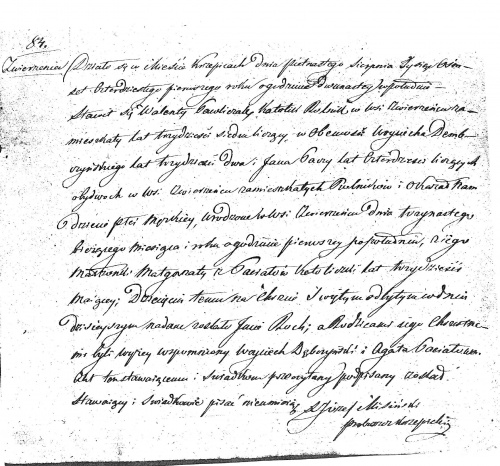 84.
Zwierzeniec Działo się w Mieście Krzepicach dnia piętnastego Sierpnia Tysiąc Ośm-
set Czterdziestego pierwszego roku o godzinie dwunastey w południe
Stawił się Walenty katolik Rolnik w wsi Zwierzeńcu za-
mieszkały lat trzydzieści siedm liczący, w Obecności Woyciecha Demb-
czyńskiego lat trzydzieści dwa; Jana lat Czterdzieści liczących
obydwoch w wsi Zwierzeńcu zamieszkałych Rolników i Okazał Nam
dziecie płci Męzkiey, urodzone w wsi Zwierzeńcu dnia trzynastego
bieżącego Miesiąca i roku o godzinie pierwszey po południu, z iego
Małżonki Małgorzaty z katoliczki lat trzydzieści
maiącey; Dziecięciu temu na Chrzcie Świętym odbytym w dniu
dzisieyszym nadane zostało Imie Roch; a Rodzicami iego Chrzestne-
mi byli wyżey wspomniony Woyciech Dębczyński i Agata
Akt ten stawaiącemu i Świadkom przeczytany podpisany został
Stawaiący i Świadkowie pisać nieumieią
X Józef Misiński
proboszcz Krzepicki